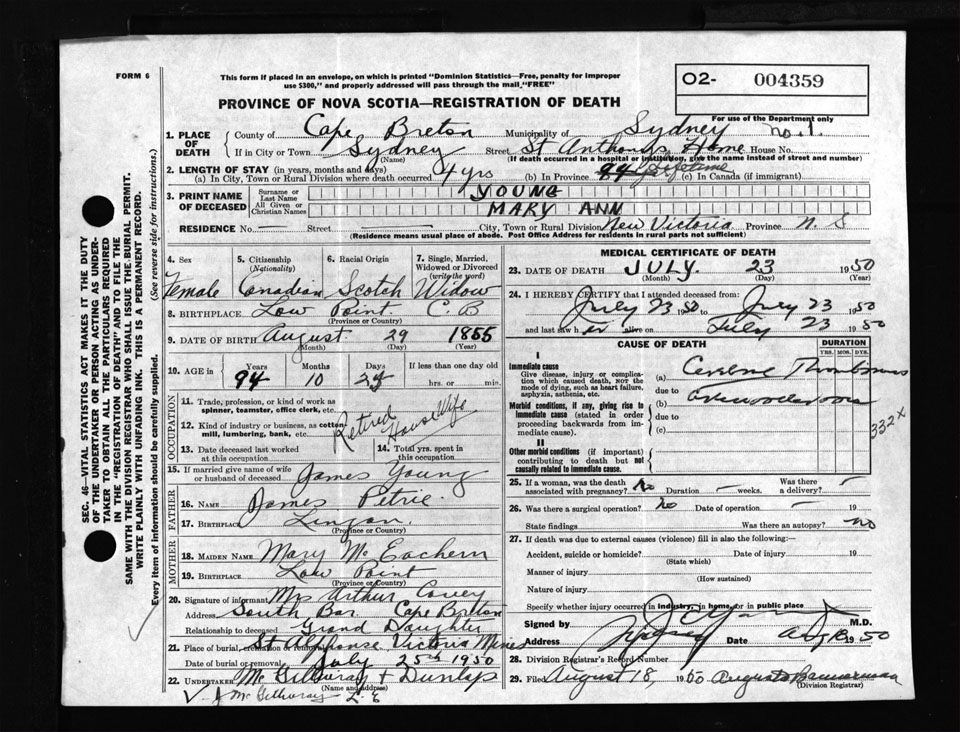 FORM 6
This form if placed in an envelope, on which is printed "Dominion Statistics—Free, penalty for improper
use $300," and properly addressed will pass through the mail "FREE"
O2- 004359
PROVINCE OF NOVA SCOTIA—REGISTRATION OF DEATH
For use of the Department only
1. PLACE OF DEATH
County of Cape Breton Municipality of Sydney No. 1.
If in City or Town Sydney Street St Anthony's Home House No.
(Name) (If death occurred in a hospital or institution, give the name instead of street and number)
2. LENGTH OF STAY (in years, months and days)
(a) In City, Town or Rural Division where death occurred 4 yrs (b) In Province 94 Lifetime (c) In Canada (if immigrant)
3. PRINT NAME OF DECEASED
Surname or Last Name YOUNG
All Given or Christian Names MARY ANN
RESIDENCE No. — Street — City, Town or Rural Division New Victoria Province N. S
(Residence means usual place of abode. Post Office Address for residents in rural parts not sufficient)
4. Sex Female
5. Citizenship (Nationality) Canadian
6. Racial Origin Scotch
7. Single, Married, Widowed or Divorced (write the word) Widow
8. BIRTHPLACE Low Point C. B
(Province or Country)
9. DATE OF BIRTH August 29 1855
(Month) (Day) (Year)
10. AGE Years 94 Months 10 Days 24 If less than one day old
hrs. or min.
OCCUPATION
11. Trade, profession, or kind of work as
spinner, teamster, office clerk, etc.
12. Kind of industry or business, as cotton-
mill, lumbering, bank, etc.
Retired Housewife
13. Date deceased last worked
at this occupation
14. Total yrs. spent in
this occupation
15. If married give name of wife
or husband of deceased James Young
FATHER
16. Name James Petrie
17. Birthplace Lingan.
(Province or Country)
MOTHER
18. MAIDEN NAME Mary McEachern
19. BIRTHPLACE Low Point
(Province or Country)
20. Signature of informant Mrs Arthur Covey
Address South Bar Cape Breton
Relationship to deceased Grand Daughter
21. Place of burial, cremation or removal St Alphonse Victoria Mines
Date of burial or removal July 25th 1950
22. UNDERTAKER McGillivray + Dunlap
(Name and address)
J McGillivray
MEDICAL CERTIFICATE OF DEATH
23. DATE OF DEATH JULY. 23 1950
(Month) (Day) (Year)
24. I HEREBY CERTIFY that I attended deceased from:
July 23 1950 to July 23 1950
and last saw her alive on July 23 1950
CAUSE OF DEATH
DURATION
YRS. MOS. DYS.
I
Immediate cause
Give disease, injury or compli-
cation which caused death, NOT the
mode of dying, such as heart failure,
asphyxia, asthenia, etc.
(a) Cerebral Thrombosis
due to
Morbid conditions, if any, giving rise to
immediate cause (stated in order
proceeding backwards from im-
mediate cause).
(b) Arteriosclerosis
due to
(c)
332 X
II
Other morbid conditions (if important)
contributing to death but not
causally related to immediate cause.
25. If a woman, was the death
associated with pregnancy? No Duration — weeks. Was there
a delivery? —
26. Was there a surgical operation? No Date of operation — 19
State findings Was there an autopsy? no
27. If death was due to external causes (violence) fill in also the following:
Accident, suicide or homicide? Date of injury 19
(State which)
Manner of injury
(How sustained)
Nature of injury
Specify whether injury occurred in industry, in home, or in public place
Signed by M.D.
Address Sydney Date Aug 18 1950
28. Division Registrar's Record Number
29. Filed August 18, 1950 Bannerman
(Division Registrar)
SEC. 46—VITAL STATISTICS ACT MAKES IT THE DUTY
OF THE UNDERTAKER OR PERSON ACTING AS UNDER-
TAKER TO OBTAIN ALL THE PARTICULARS REQUIRED
IN THE "REGISTRATION OF DEATH" AND TO FILE THE
SAME WITH THE DIVISION REGISTRAR WHO SHALL ISSUE THE BURIAL PERMIT.
WRITE PLAINLY WITH UNFADING INK. THIS IS A PERMANENT RECORD.
Every item of information should be carefully supplied. (See reverse side for instructions.)